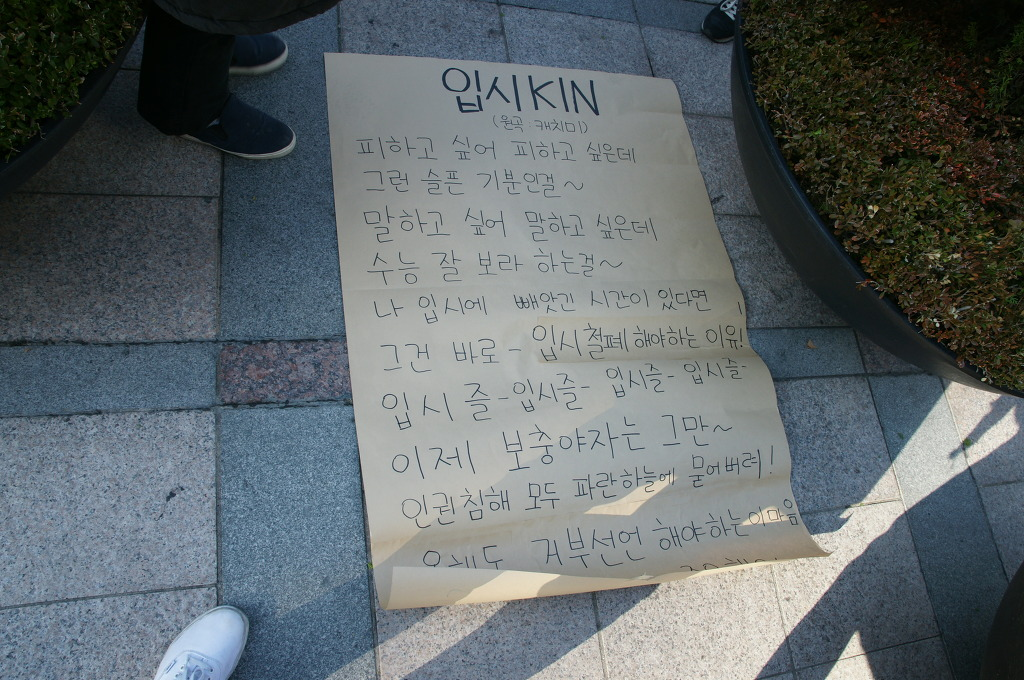 입시KIN
(원곡 캐치미)
피하고 싶어 피하고 싶은데
그런 슬픈 기분인걸~
말하고 싶어 말하고 싶은데
수능 잘 보라 하는걸~
나 입시에 빼앗긴 시간이 있다면
그건 바로- 입시철폐해야하는 이유!
입시 즐-입시즐- 입시즐- 입시즐-
이제 보충야자는 그만~
인권침해 모두 파란하늘에 묻어버려!
올해도 거부선언 해야하는 이마음